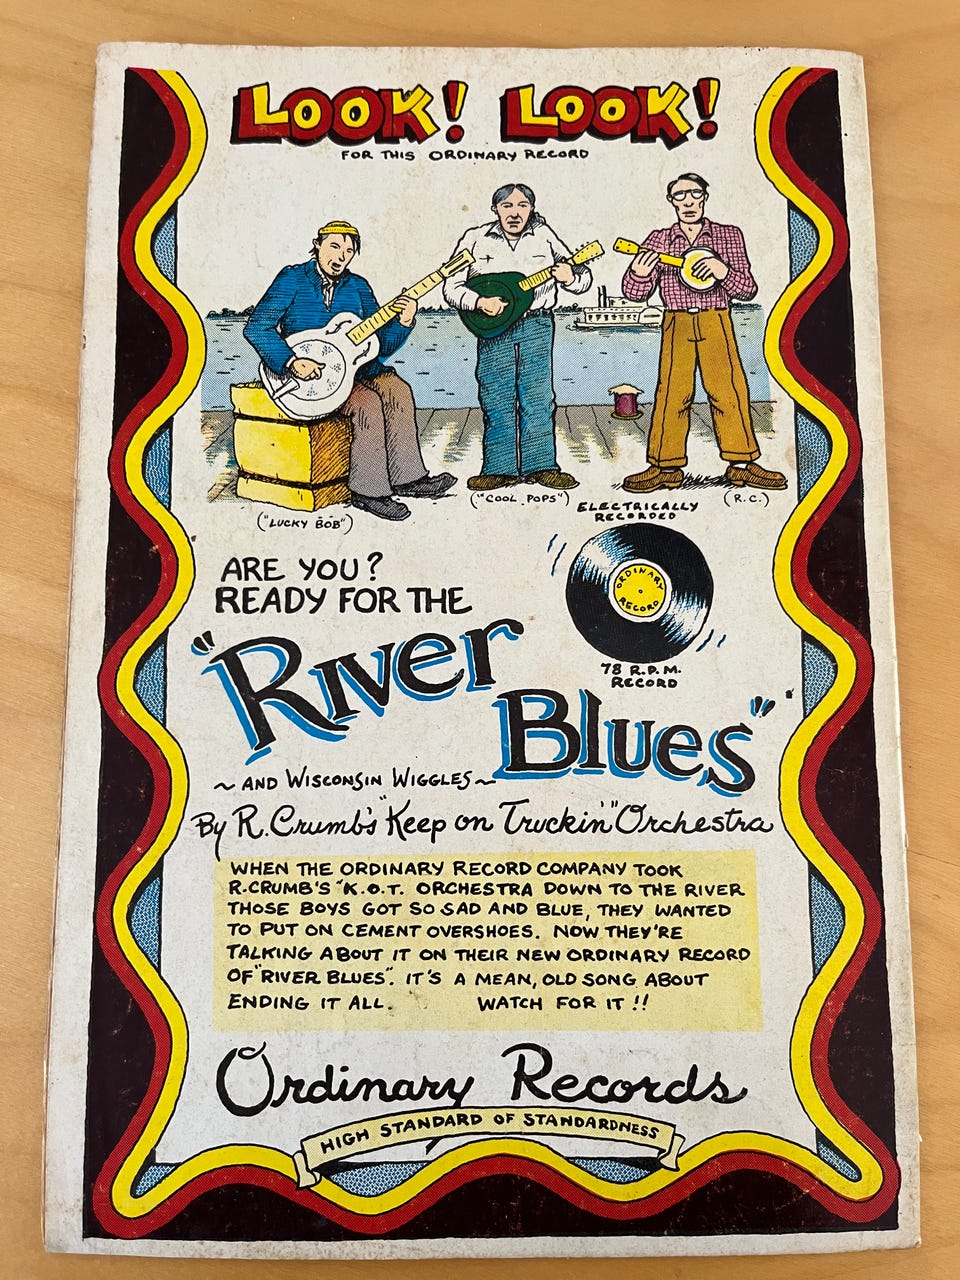 LOOK! LOOK!
FOR THIS ORDINARY RECORD
("LUCKY BOB")
("COOL POPS")
(R.C.)
ELECTRICALLY
RECORDED
ORDINARY
RECORD
78 R.P.M.
RECORD
ARE YOU?
READY FOR THE
"RIVER
BLUES"
~AND WISCONSIN WIGGLES~
By R. Crumb's "Keep on Truckin'" Orchestra
WHEN THE ORDINARY RECORD COMPANY TOOK
R.CRUMB'S "K.O.T. ORCHESTRA DOWN TO THE RIVER
THOSE BOYS GOT SO SAD AND BLUE, THEY WANTED
TO PUT ON CEMENT OVERSHOES. NOW THEY'RE
TALKING ABOUT IT ON THEIR NEW ORDINARY RECORD
OF "RIVER BLUES". IT'S A MEAN, OLD SONG ABOUT
ENDING IT ALL. WATCH FOR IT!!
Ordinary Records
HIGH STANDARD OF STANDARDNESS